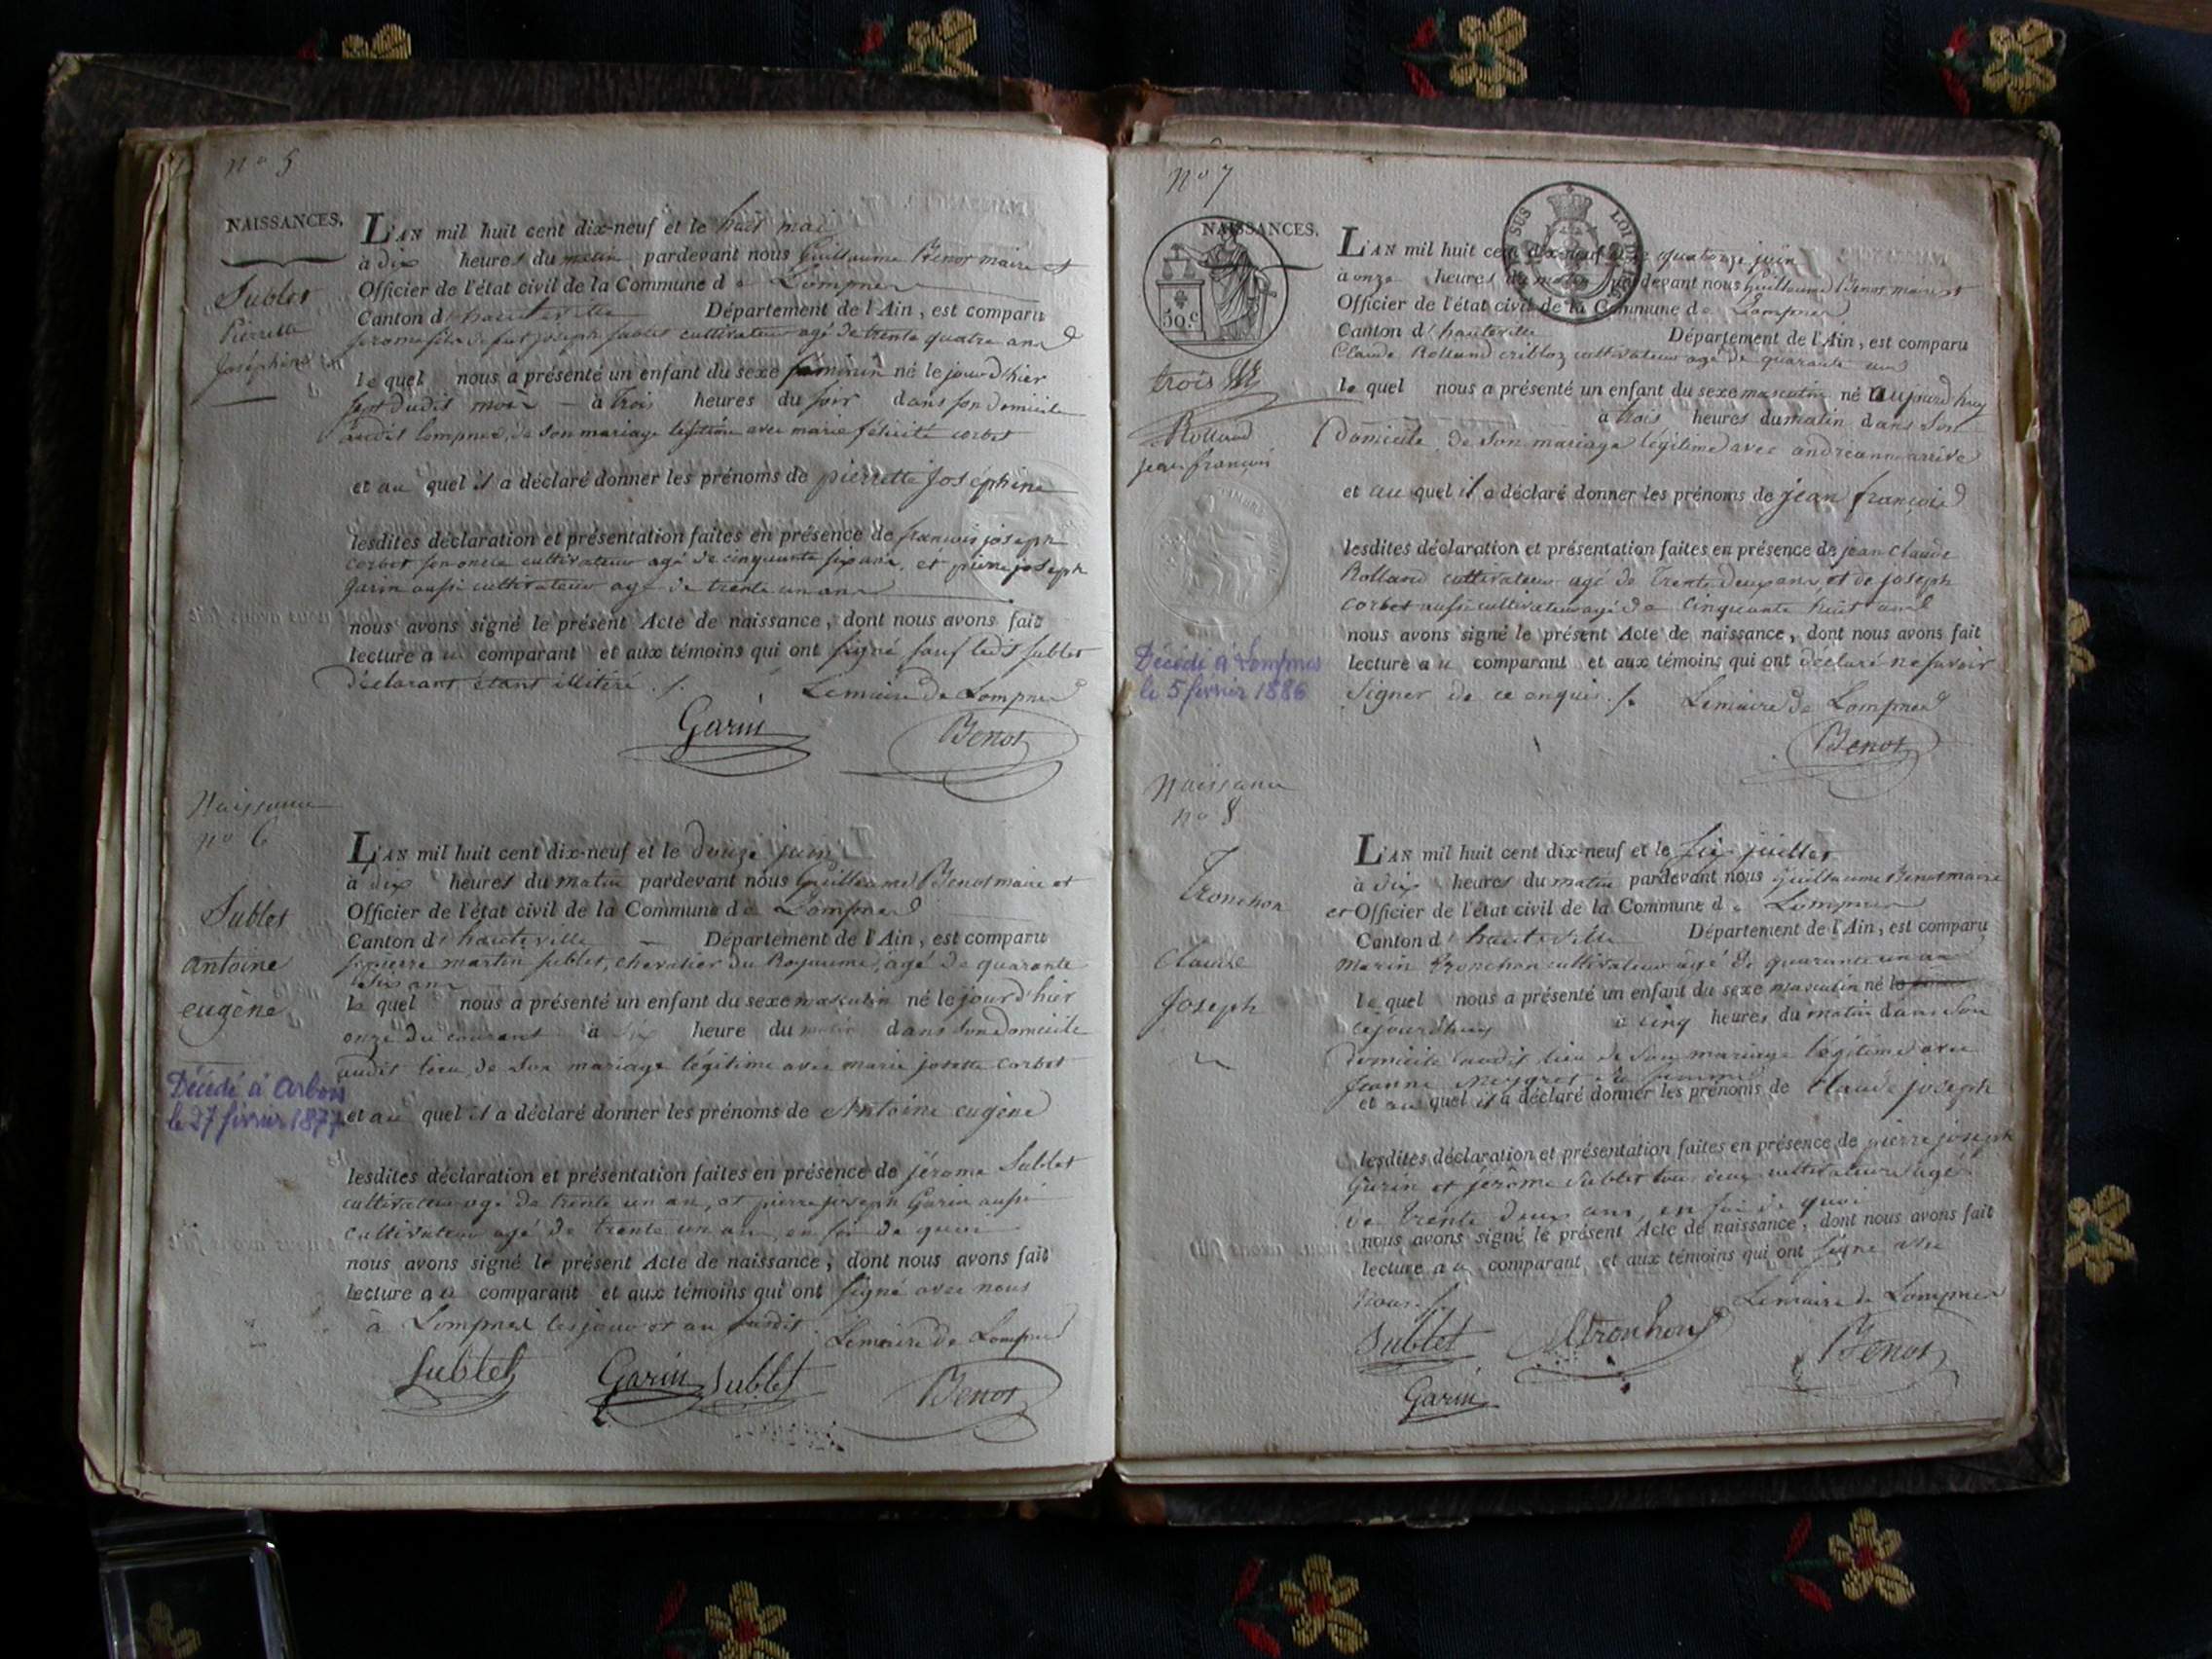 nº 5
NAISSANCES.
Sublet
Pierrette
Joséphine
L'AN mil huit cent dix-neuf et le huit mai
à dix heures du matin pardevant nous Guillaume Benot maire et
Officier de l'état civil de la Commune de Lompnes
Canton d'hauteville Département de l'Ain, est comparu
jerome fils de fut joseph sublet cultivateur agé de trente quatre ans
lequel nous a présenté un enfant du sexe féminin né le jour d'hier
sept dudit mois à trois heures du soir dans son domicile
audit lompnes, de son mariage légitime avec marie félicité corbet
et au quel il a déclaré donner les prénoms de pierrette Joséphine
lesdites déclaration et présentation faites en présence de francois joseph
corbet son oncle cultivateur agé de cinquante six ans, et pierre joseph
garin aussi cultivateur agé de trente un ans
nous avons signé le présent Acte de naissance, dont nous avons fait
lecture au comparant et aux témoins qui ont signé sauf ledit sublet
déclarant étant illitéré ./. Lemaire de Lompnes
Garin Benot
Naissance
nº 6
Sublet
antoine
eugène
Décédé à Arbois
le 27 février 1877
L'AN mil huit cent dix-neuf et le douze juin
à dix heures du matin pardevant nous Guillaume Benot maire et
Officier de l'état civil de la Commune de Lompnes
Canton d'hauteville Département de l'Ain, est comparu
pierre martin sublet, chevalier du Royaume, agé de quarante
six ans
lequel nous a présenté un enfant du sexe masculin né le jour d'hier
onze du courant à six heure du matin dans son domicile
audit lieu, de son mariage légitime avec marie josette corbet
et au quel il a déclaré donner les prénoms de Antoine eugène
lesdites déclaration et présentation faites en présence de jérome Sublet
cultivateur agé de trente un an, et pierre joseph Garin aussi
cultivateur agé de trente un an, en foi de quoi
nous avons signé le présent Acte de naissance, dont nous avons fait
lecture au comparant et aux témoins qui ont signé avec nous
à Lompnes les jour et an susdit. Lemaire de Lompnes
Sublet Garin Sublet Benot
nº 7
NAISSANCES.
50.c
trois
Rolland
jean françois
Décédé à Lompnes
le 5 février 1886
L'AN mil huit cent dix-neuf et le quatorze juin
à onze heures du matin pardevant nous Guillaume Benot maire et
Officier de l'état civil de la Commune de Lompnes
Canton d'hauteville Département de l'Ain, est comparu
Claude Rolland cultivateur agé de quarante ans
lequel nous a présenté un enfant du sexe masculin né aujourd'huy
à trois heures du matin dans son
Domicile de son mariage légitime avec
et au quel il a déclaré donner les prénoms de jean françois
lesdites déclaration et présentation faites en présence de jean claude
Rolland cultivateur agé de trente deux ans, et de joseph
corbet aussi cultivateur agé de cinquante huit ans
nous avons signé le présent Acte de naissance, dont nous avons fait
lecture au comparant et aux témoins qui ont déclaré ne savoir
signer de ce enquis ./. Lemaire de Lompnes
Benot
Naissance
nº 8
Tronchon
claude
Joseph
L'AN mil huit cent dix-neuf et le six juillet
à dix heures du matin pardevant nous Guillaume Benot maire
et Officier de l'état civil de la Commune de Lompnes
Canton d'hauteville Département de l'Ain, est comparu
Marin Tronchon cultivateur agé de quarante un an
lequel nous a présenté un enfant du sexe masculin né le
cejourdhuy à cinq heures du matin dans son
domicile audit lieu de son mariage légitime avec
Jeanne Meygret sa femme
et au quel il a déclaré donner les prénoms de claude joseph
lesdites déclaration et présentation faites en présence de pierre joseph
Garin et jérôme Sublet tous deux cultivateurs agé
de trente deux ans, en foi de quoi
nous avons signé le présent Acte de naissance, dont nous avons fait
lecture au comparant et aux témoins qui ont signé avec
nous ./. Lemaire de Lompnes
Sublet MTronchon Benot
Garin